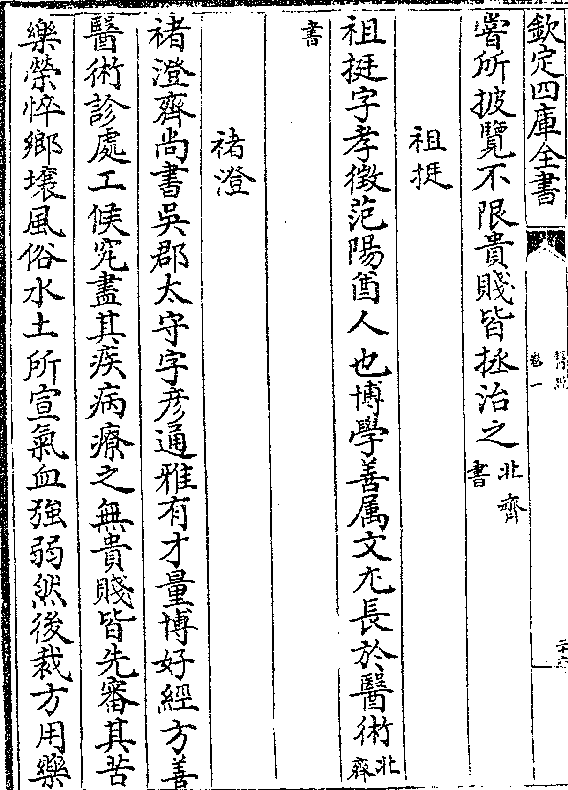 欽定四庫全書
卷一
嘗所披覽不限貴賤皆拯治之北齊書
祖挺
祖挺字孝徵范陽酋人也博學善属文尤長於醫術北齊書
褚澄
褚澄齊尚書吳郡太守字彥通雅有才量博好經方善
醫術診處工候究盡其疾病療之無貴賤皆先審其苦
樂榮悴鄉壤風俗水土所宣氣血強弱然後裁方用藥